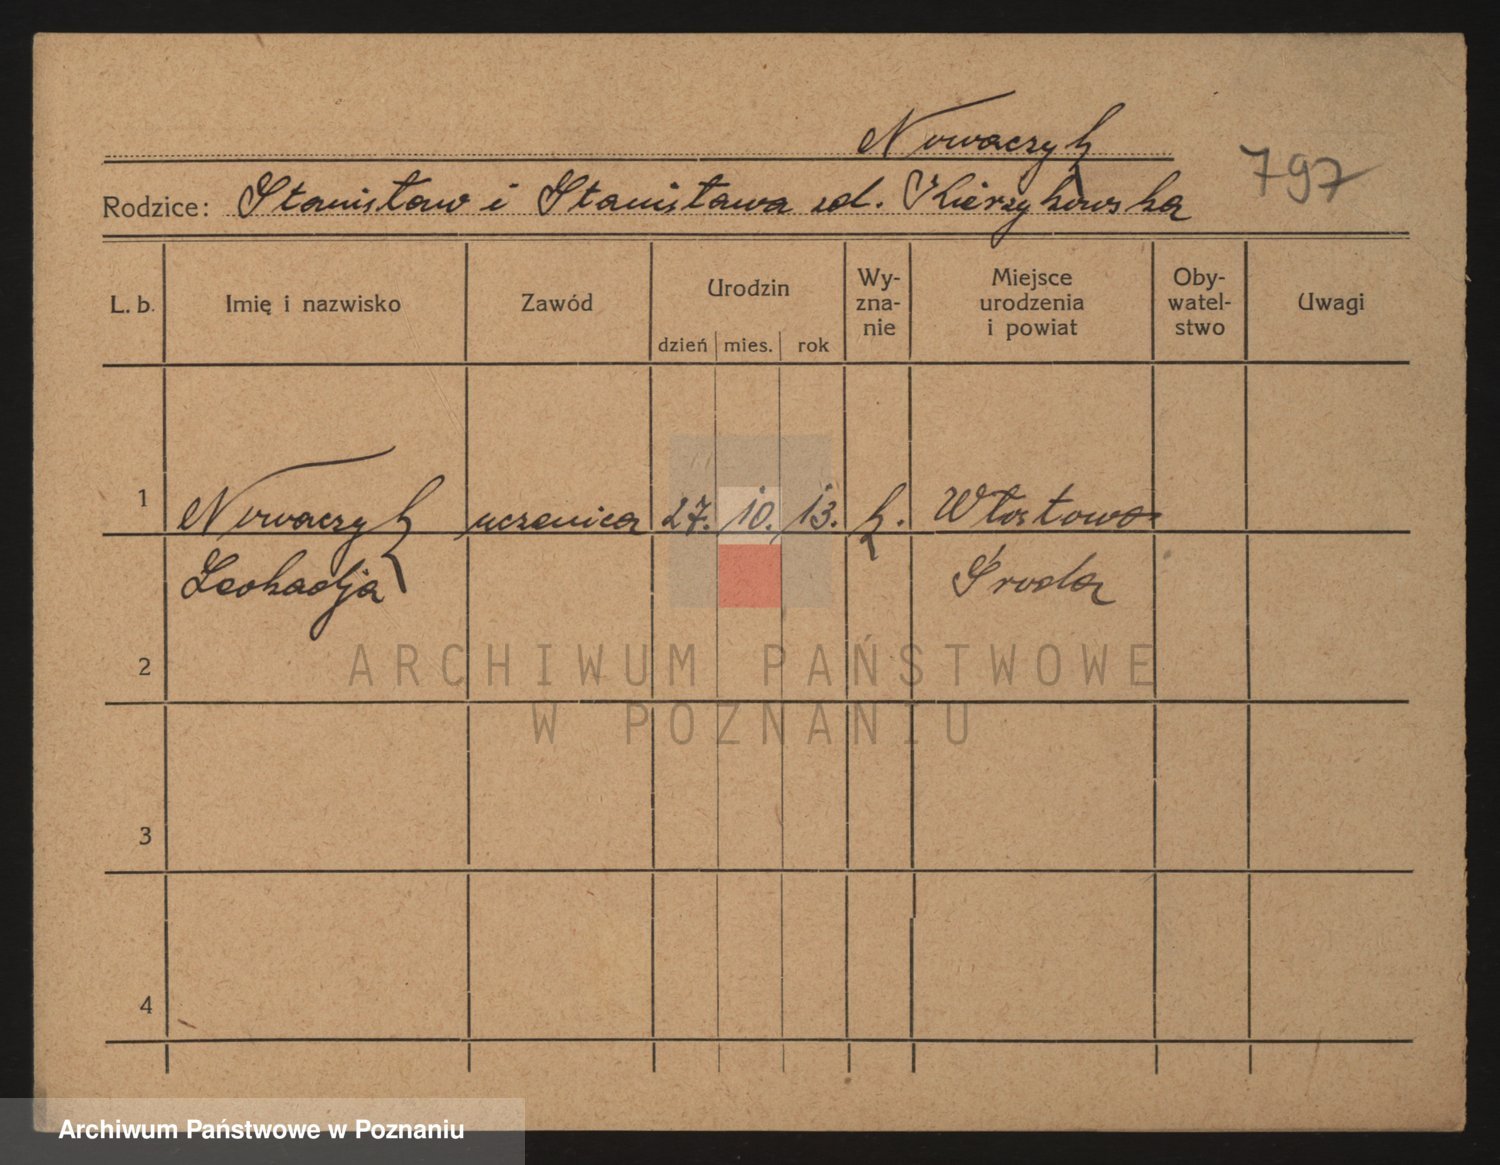 Nowaczyk
797
Rodzice: Stanisław i Stanisława zd. Kierzykowska
L. b.
Imię i nazwisko
Zawód
Urodzin
dzień mies. rok
Wy-
zna-
nie
Miejsce
urodzenia
i powiat
Oby-
watel-
stwo
Uwagi
1 Nowaczyk uczenica 27. 10. 13. k. Włostowo
Leokadja Środa
2
3
4
ARCHIWUM PAŃSTWOWE
W POZNANIU
Archiwum Państwowe w Poznaniu